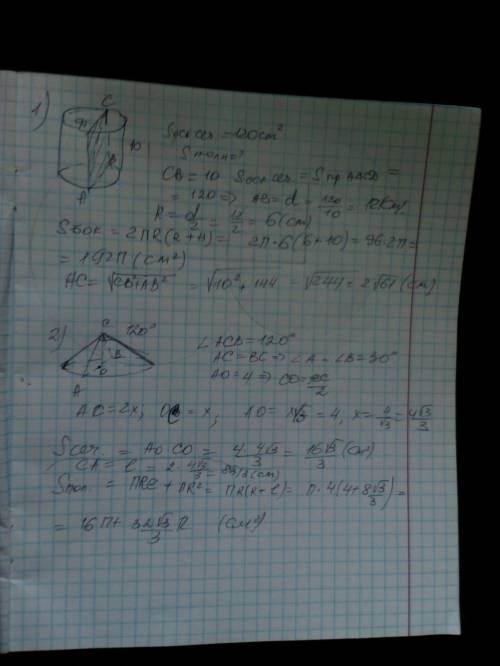 1)
C
10
A
Sос сеч = 120см²
Sполн = ?
CB = 10 Sос сеч = Sпр =
= 120 => AB = d = 120/10 = 12см.
R = d/2 = 12/2 = 6 (см)
Sбок = 2ПR(R+H) = 2П·6(6+10) = 96·2П =
= 192П (см²)
AC = √CB²+AB² = √10²+144 = √244 = 2√61 (см)
2)
C 120°
B
O
A
∠ACB = 120°
AC = BC => ∠A = ∠B = 30°
AO = 4 => CO = AC/2
AC = 2x; OC = x, AO = x√3 = 4, x = 4/√3 = 4√3/3
Sсеч = AO·CO = 4·4√3/3 = 16√3/3 (см)
CA = l = 2·4√3/3 = 8√3/3 (см)
Sпол. = ПRl + ПR² = ПR(R+l) = П·4(4+8√3/3) =
= 16П + 32√3/3 П (см²)